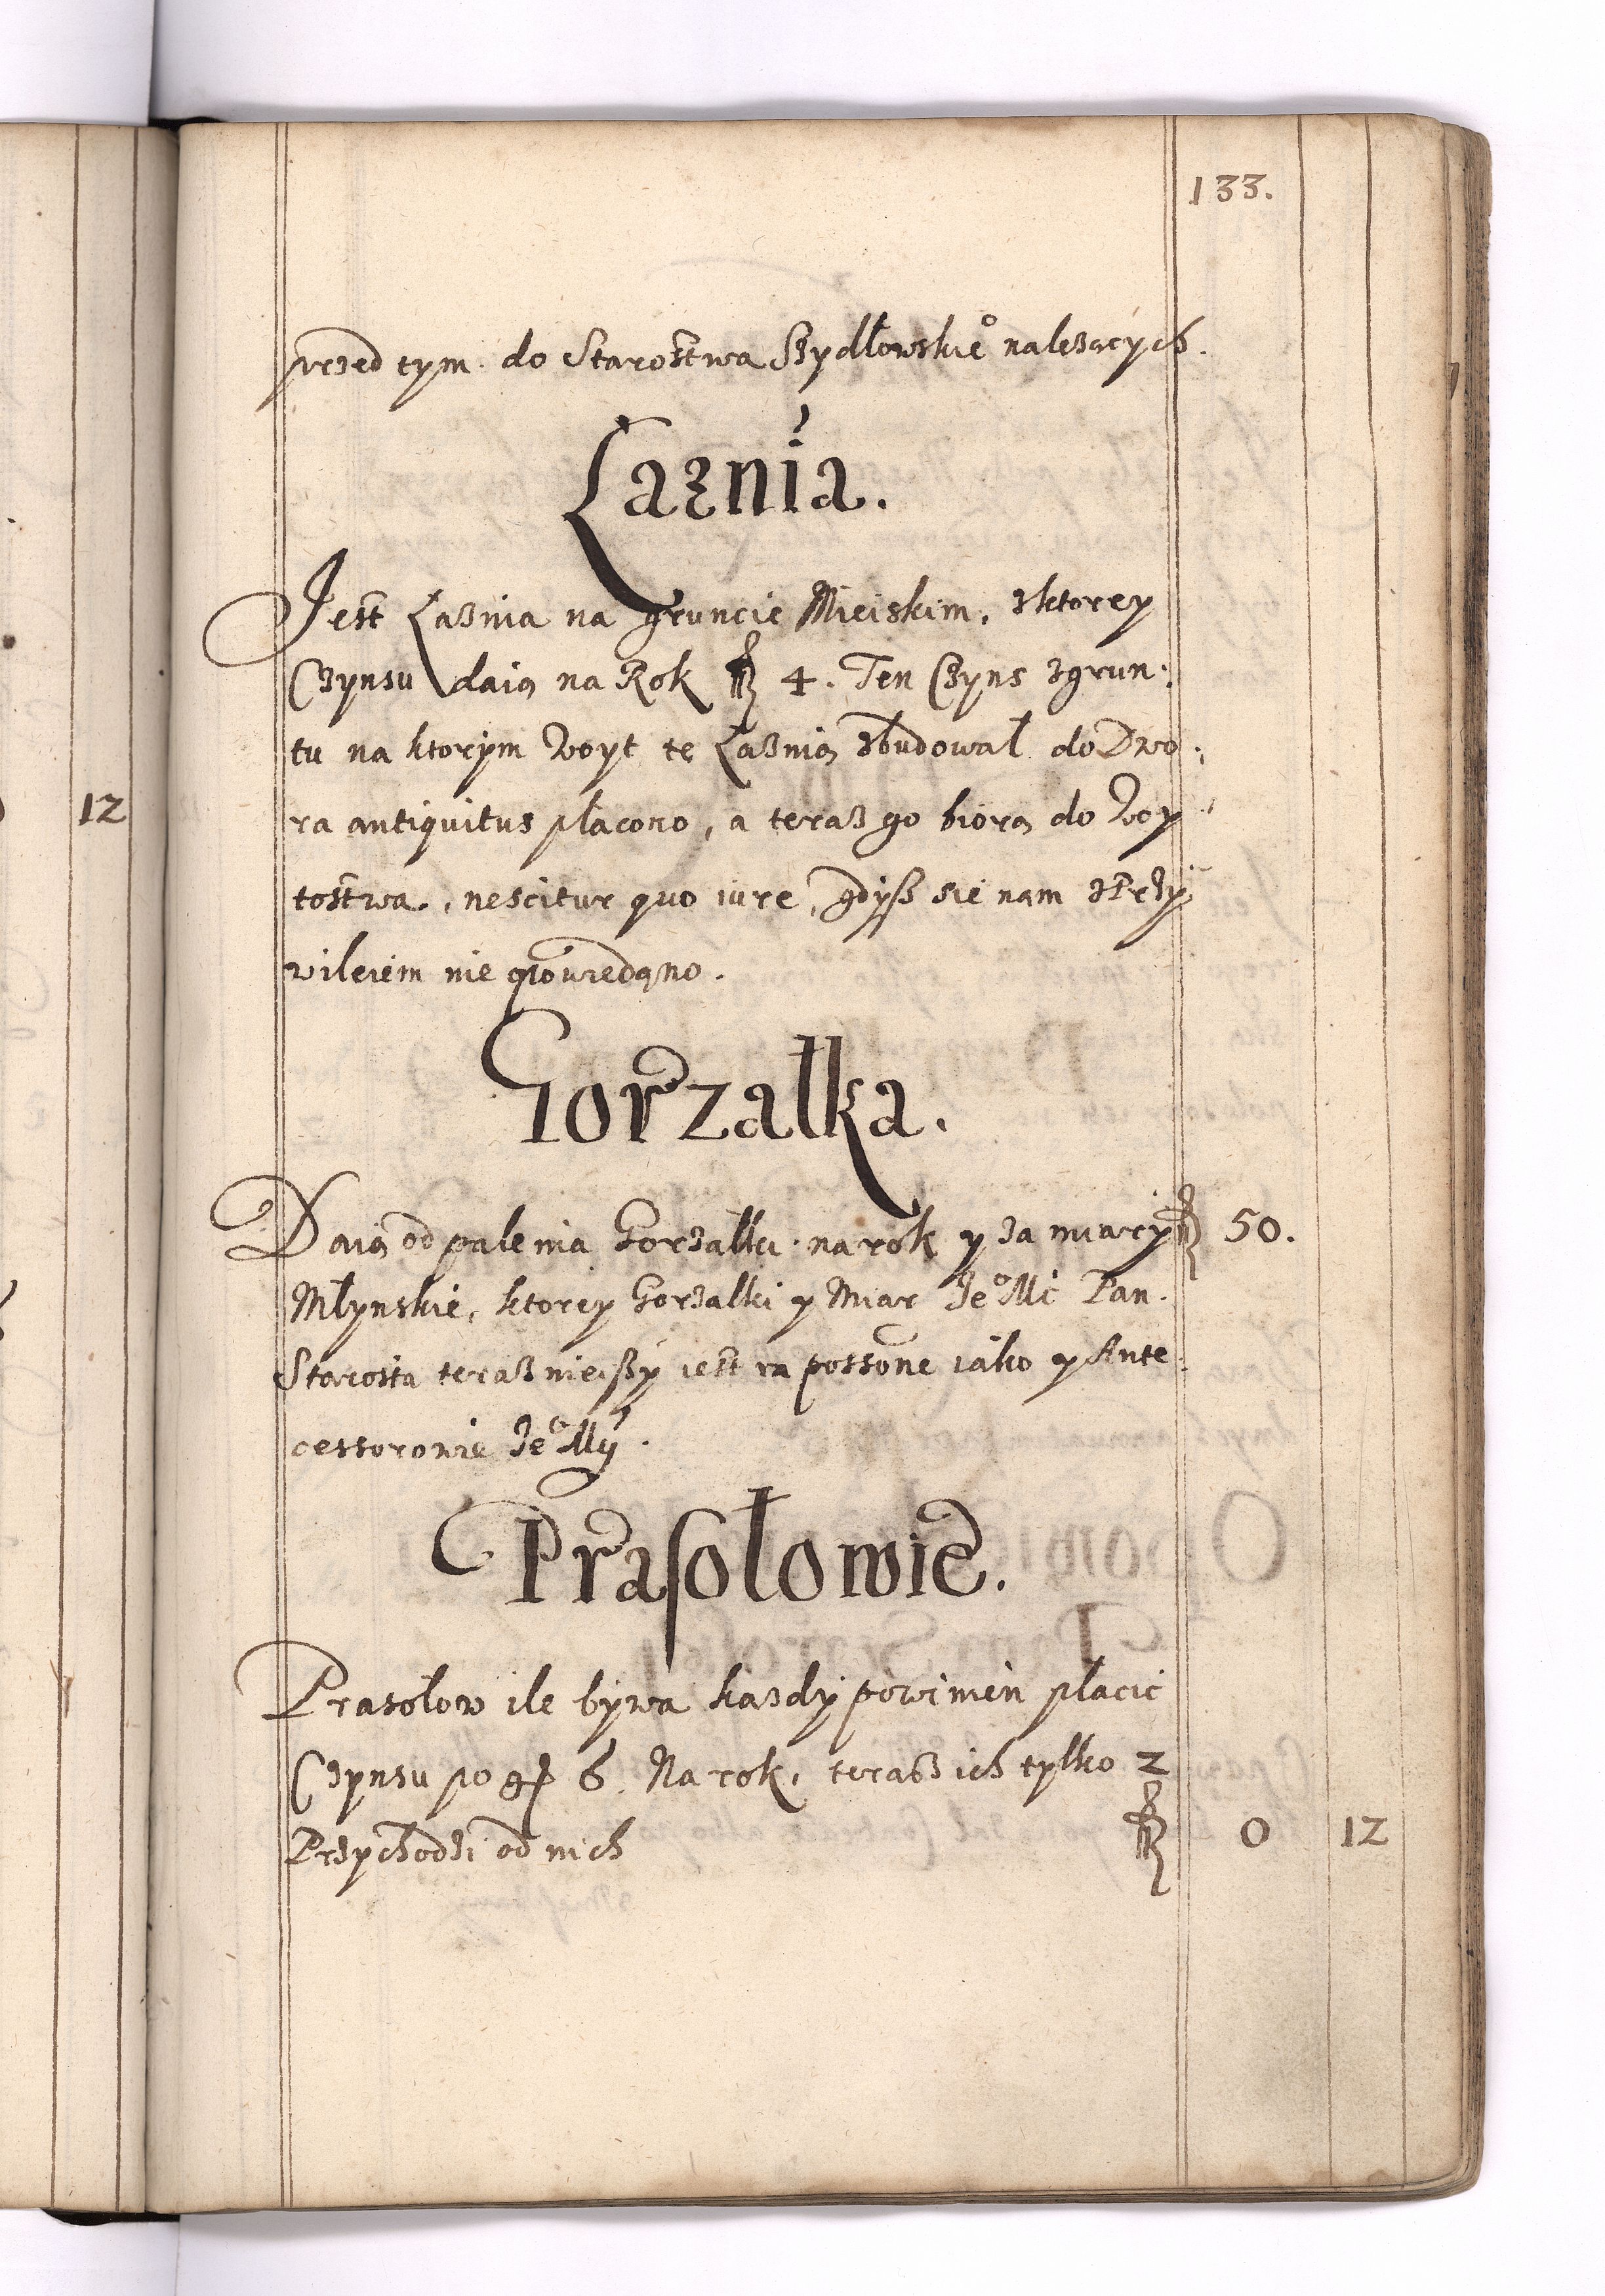 133.
przed tym. do Starostwa Szydłowskie° należących.
Łaznia.
Jest Łaznia na gruncie Mieiskim, zktorey
Czynsu daią na Rok fl 4. Ten Czyns zgrun:
tu na ktorym Woyt te Łaznią zbudował do Dwo:
ra antiquitus płacono, a teraz go biorą do Woy
tostwa, nescitur quo iure, gdysz sie nam zPrzy
wileiem nie
Gorzałka.
Daią od palenia Gorzałki na rok y za miary fl 50.
Młynskie, ktorey Gorzałki y Miar Je° Mć Pan.
Starosta teraznieiszy iest in possone iako y Ante:
cessorowie Je° Mći.
Prasołowie.
Prasołow ile bywa kazdy powinien płacic
Czynsu po gr 6. Na rok, teraz ich tylko 2
Przychodzi od nich fl 0 12
12